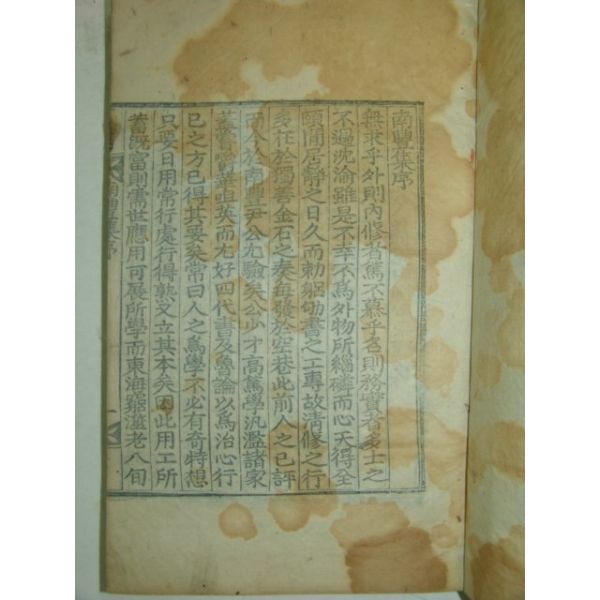 南豐集序
無求乎外則內修者篤不慕乎名則務實者多士之
不遇沈淪雖是不幸不爲外物所緇磷而心天得全
頤閒居靜之日久而勅躬劬書之工專故淸修之行
多在於獨善金石之奏每發於空巷此前人之已評
而人於南豐尹公尤驗矣公少才高篤學汎濫諸家
英而尤好四代書及魯論以爲治心行
己之方已得其要矣常曰人之爲學不必有奇特想
只要日用常行處行得熟又立其本矣因此用工所
蓄旣富則需世應用可展所學而東海窮澨老八旬
南豐集序
一